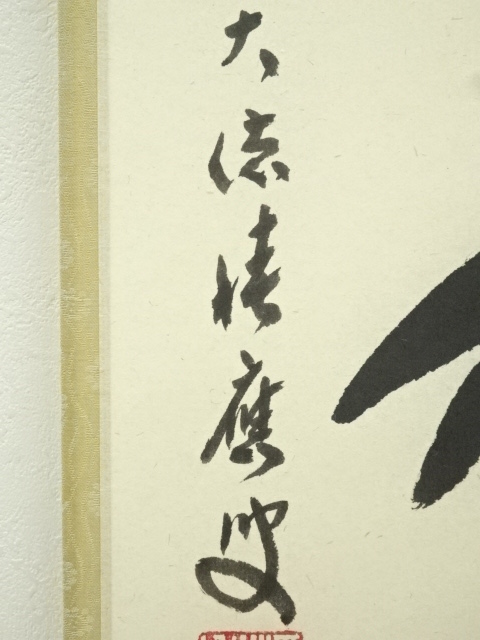 大徳積應叟